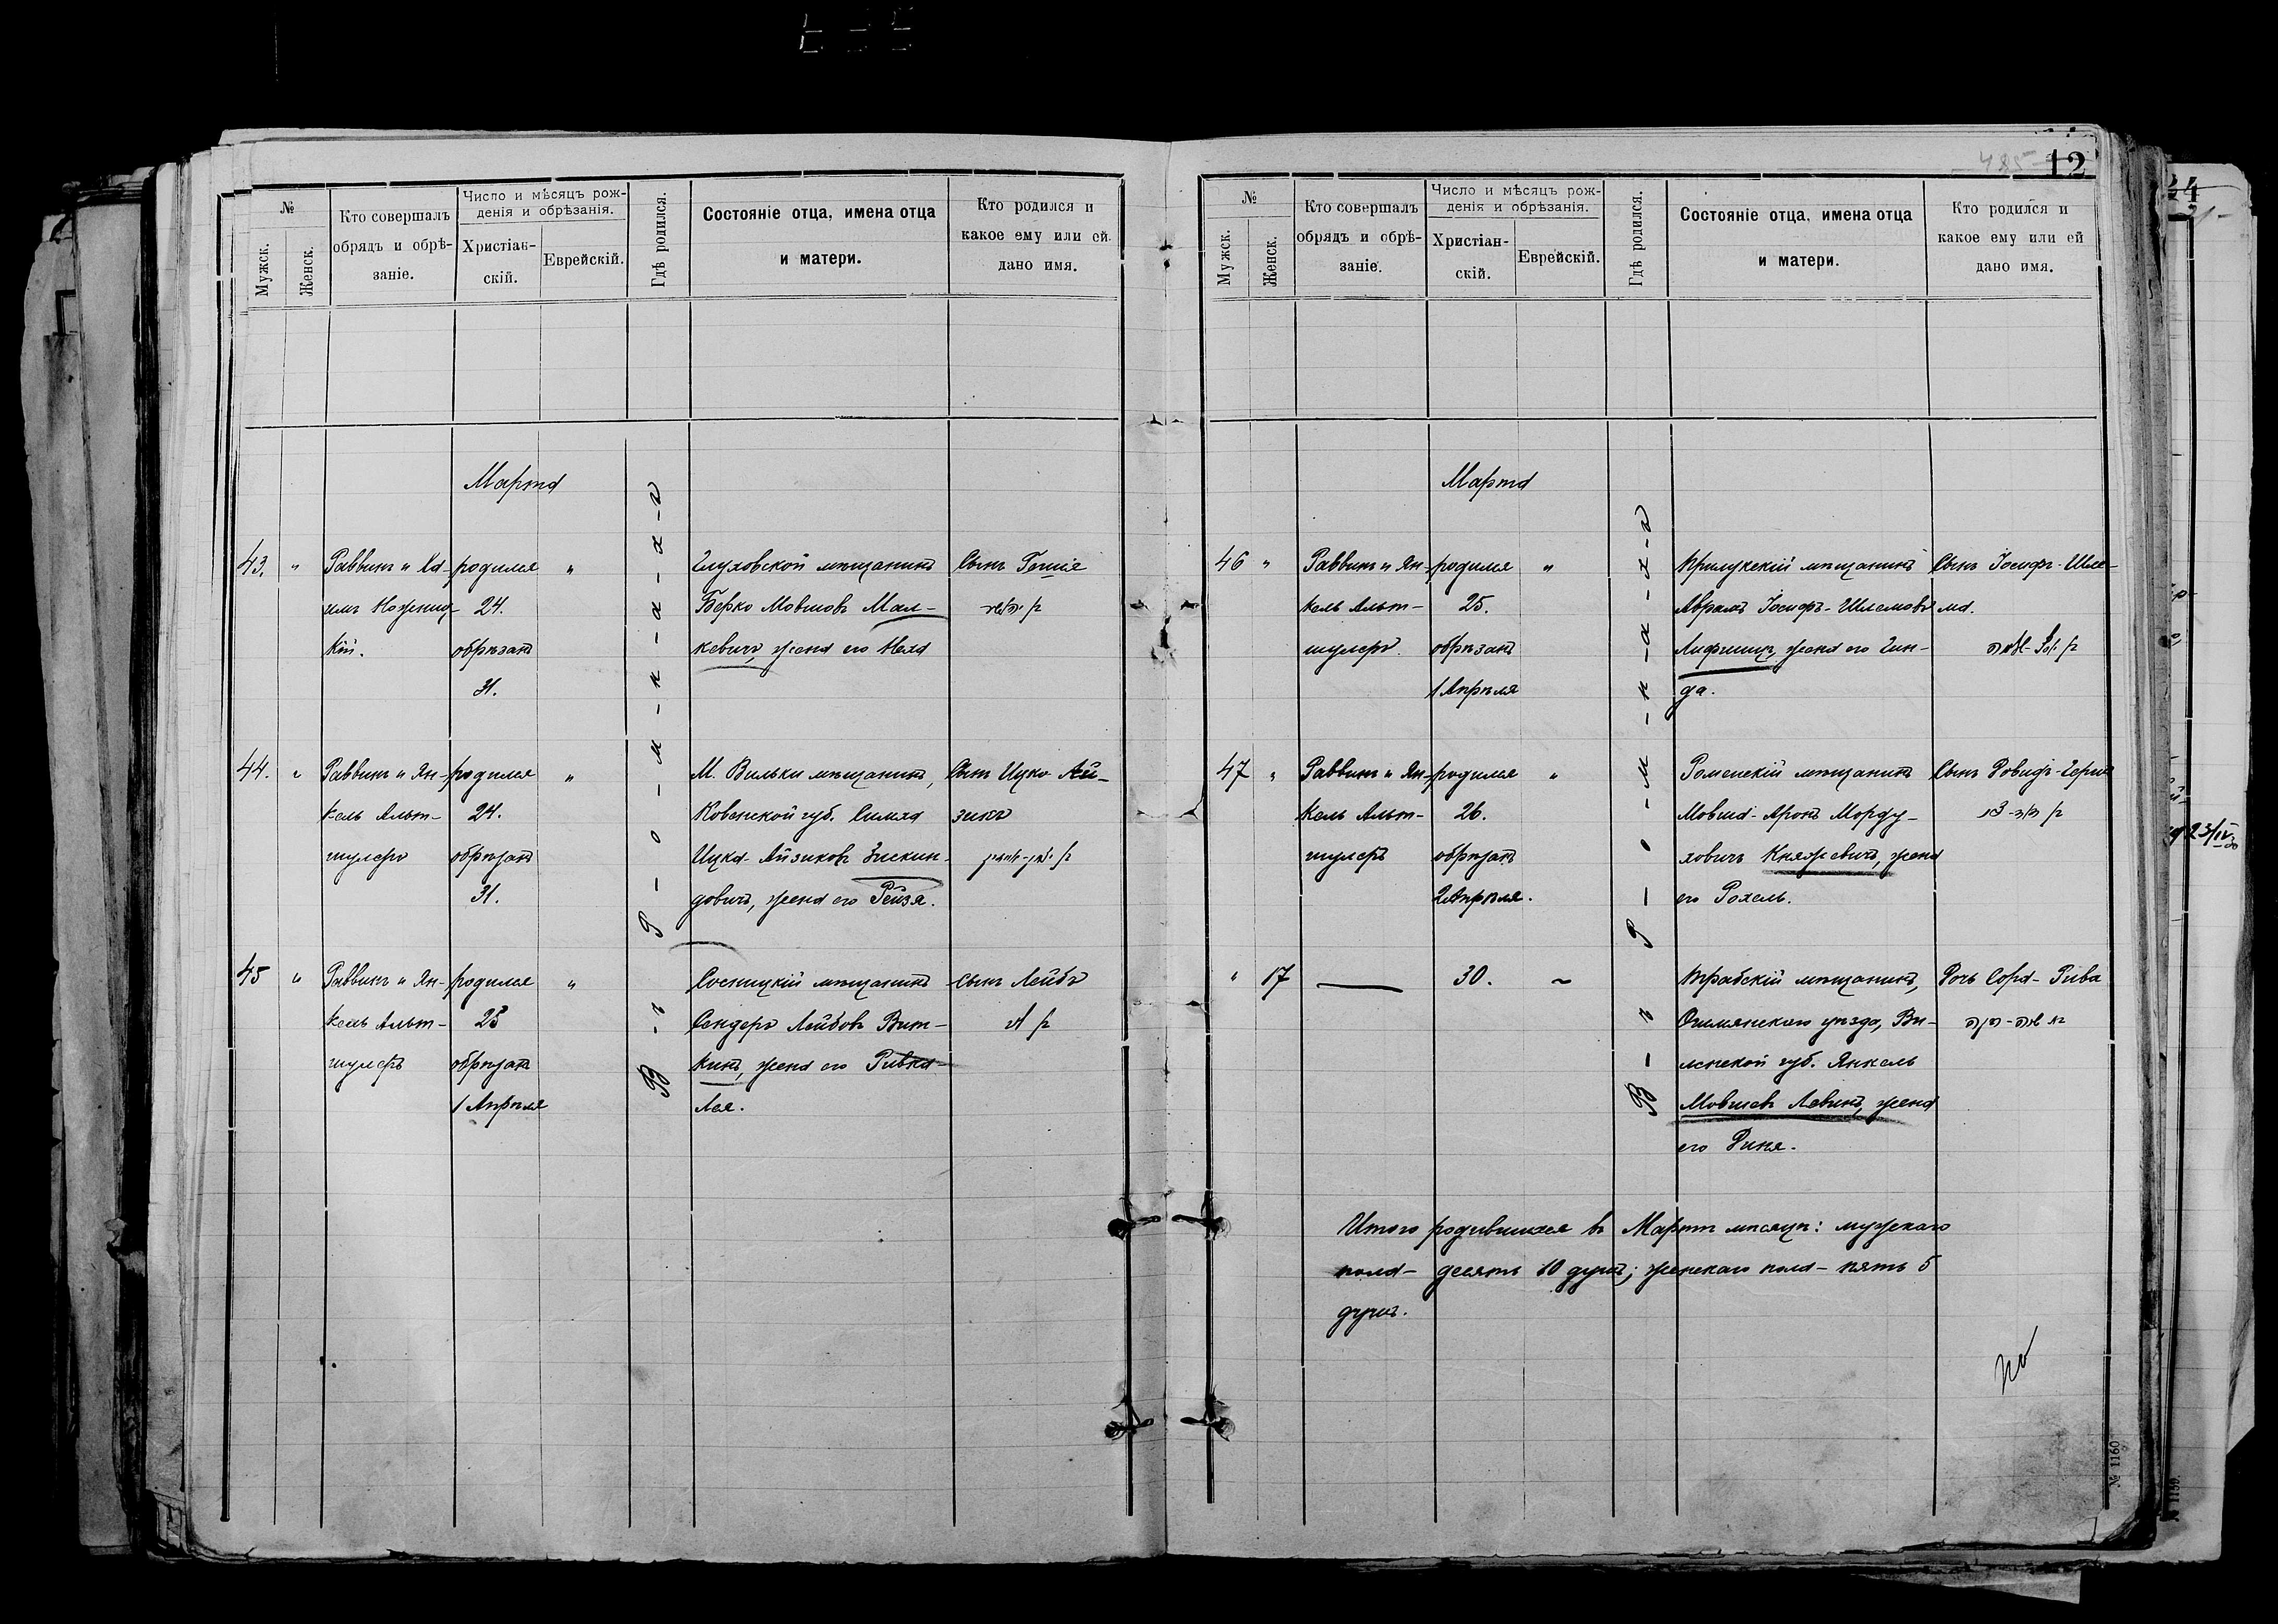 №
Мужск.
Женск.
Кто совершалъ
обрядъ и обрѣ-
заніе.
Число и мѣсяцъ рож-
денія и обрѣзанія.
Христіан-
скій.
Еврейскій.
Гдѣ родился.
Состояніе отца, имена отца
и матери.
Кто родился и
какое ему или ей
дано имя.
Марта
В - ъ - Р - о - м - н - а - х - ъ
43. "
Раввинъ и Ха-
имъ Ножниц-
кій.
родился
24.
обрѣзанъ
31.
"
Глуховской мѣщанинъ
Берко Мовшовъ Мал-
кевичъ, жена его Неха
Сынъ Гешіе
44. "
Раввинъ и Ян-
кель Альт-
шулеръ
родился
24.
обрѣзанъ
31.
"
М. Вильки мѣщанинъ,
Ковенской губ. Симха
Ицка-Айзиковъ Зискин-
довичъ, жена его Рейзя.
Сынъ Ицко Ай-
зикъ
45 "
Раввинъ и Ян-
кель Альт-
шулеръ
родился
25
обрѣзанъ
1 Апрѣля
"
Сосницкій мѣщанинъ
Сендеръ Лейбовъ Вит-
кинъ, жена его Ривка-
Лея.
Сынъ Лейбъ
485
12
№
Мужск.
Женск.
Кто совершалъ
обрядъ и обрѣ-
заніе.
Число и мѣсяцъ рож-
денія и обрѣзанія.
Христіан-
скій.
Еврейскій.
Гдѣ родился.
Состояніе отца, имена отца
и матери.
Кто родился и
какое ему или ей
дано имя.
Марта
46 "
Раввинъ и Ян-
кель Альт-
шулеръ
родился
25.
обрѣзанъ
1 Апрѣля
"
Прилукскій мѣщанинъ
Аврамъ Іосифъ-Шлемовъ
Лифшицъ, жена его Гин-
да.
Сынъ Іосифъ-Шле-
ма.
47 "
Раввинъ и Ян-
кель Альт-
шулеръ
родился
26.
обрѣзанъ
2 Апрѣля.
"
Роменскій мѣщанинъ
Мовша-Аронъ Морду-
ховичъ Княжевичъ, жена
его Рохель.
Сынъ Довидъ-Герш
" 17
30.
Трабскій мѣщанинъ,
Ошмянскаго уѣзда, Ви-
ленской губ. Янкель
Мовшевъ Левинъ, жена
его Диня.
Дочь Сора-Рива
Итого родившихся въ Мартѣ мѣсяцѣ: мужскаго
пола - десять 10 душъ; женскаго пола - пять 5
душъ.
№ 1160
№ 1159.